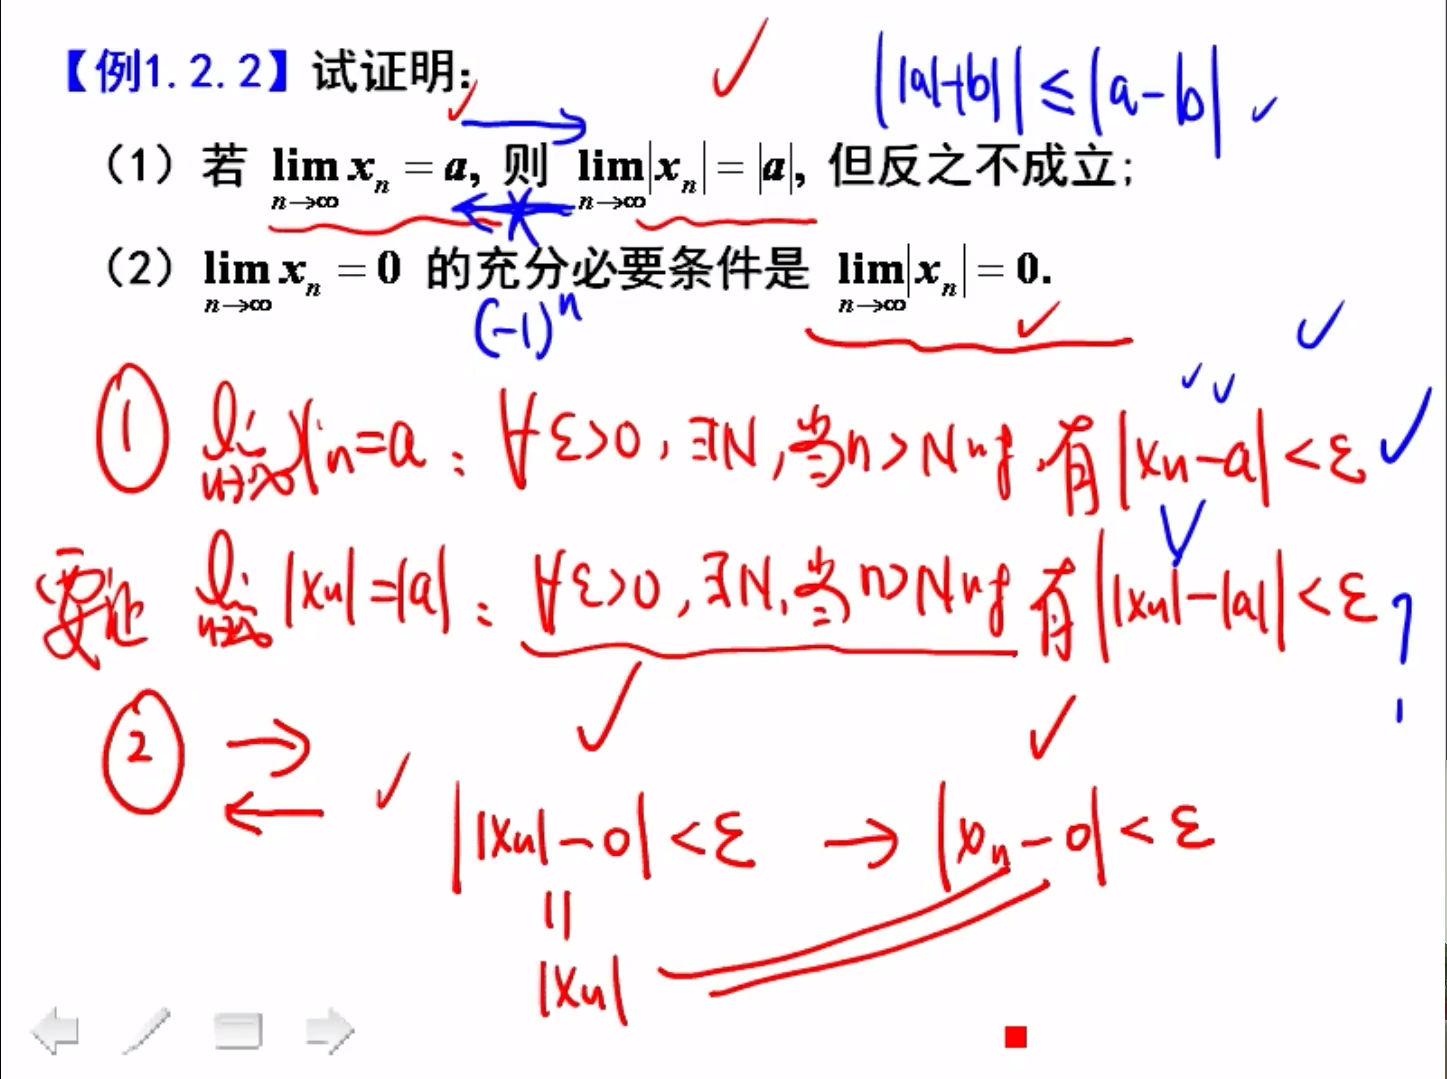 【例1.2.2】试证明: ||a|-|b|| ≤ |a-b|
(1) 若 lim n→∞ xₙ = a, 则 lim n→∞ |xₙ| = |a|, 但反之不成立;
(2) lim n→∞ xₙ = 0 的充分必要条件是 lim n→∞ |xₙ| = 0.
(-1)ⁿ
① lim n→∞ xₙ = a : ∀ε>0, ∃N, 当n>N时, 有|xₙ-a|<ε
要证 lim n→∞ |xₙ|=|a| : ∀ε>0, ∃N, 当n>N时 有||xₙ|-|a||<ε ?
② → ←
||xₙ|-0|<ε → |xₙ-0|<ε
||
|xₙ|